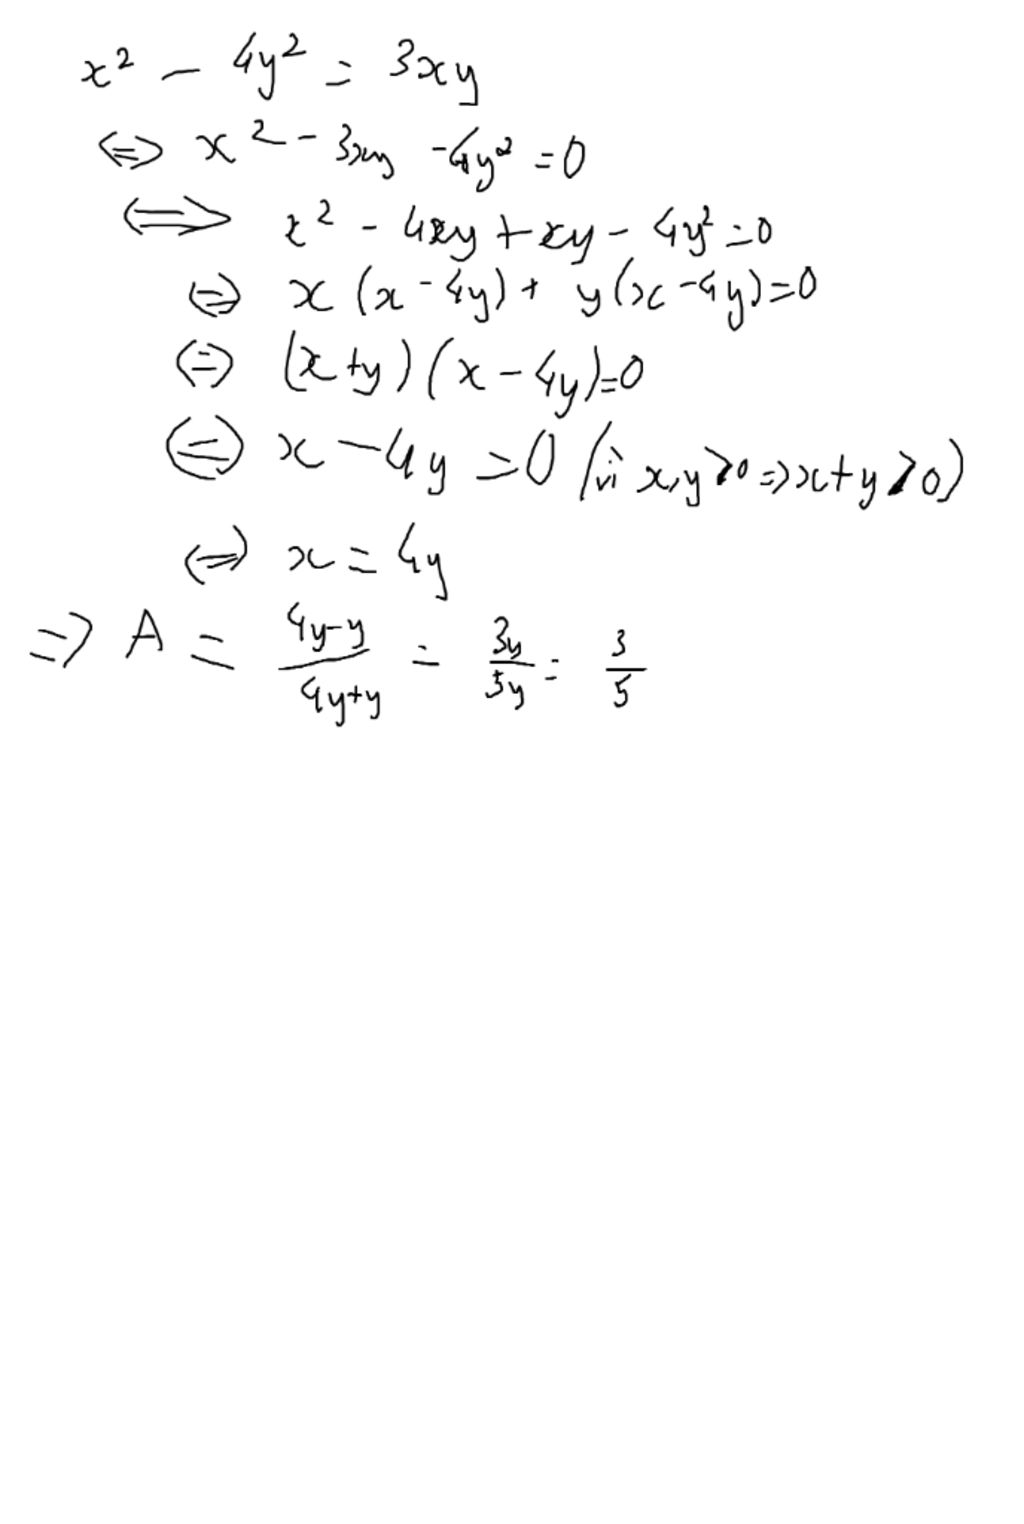 x² - 4y² = 3xy
⇔ x² - 3xy - 4y² = 0
⇔ x² - 4xy + xy - 4y² = 0
⇔ x (x - 4y) + y(x - 4y) = 0
⇔ (x+y)(x - 4y) = 0
⇔ x - 4y = 0 (vì x,y > 0 => x+y > 0)
⇔ x = 4y
=> A = (4y-y)/(4y+y) = 3y/5y = 3/5